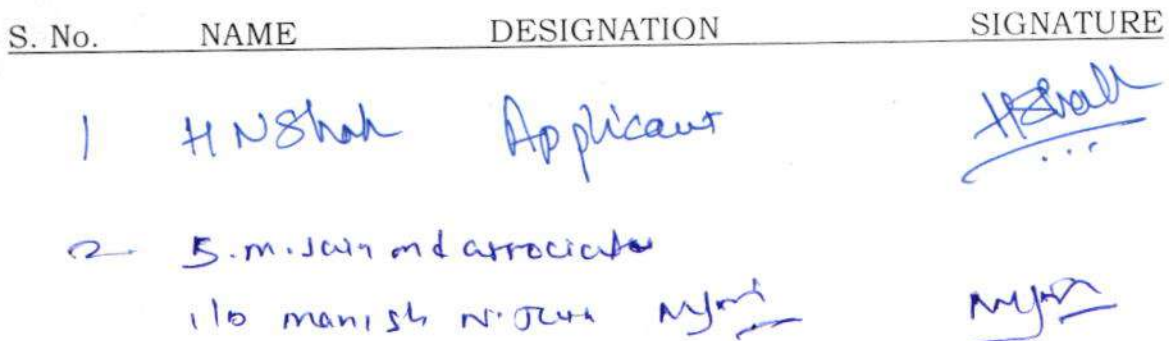 S. No. NAME DESIGNATION SIGNATURE
1 H N Shah Applicant HShah
2 S. m. Jain and associate
i/b manish N. Jain